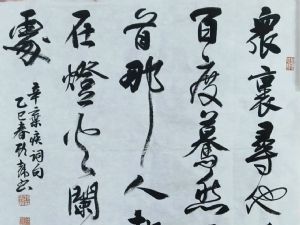 衆裏尋他
百度驀然
首那人却
在燈火闌
處
辛棄疾詞句
乙巳春